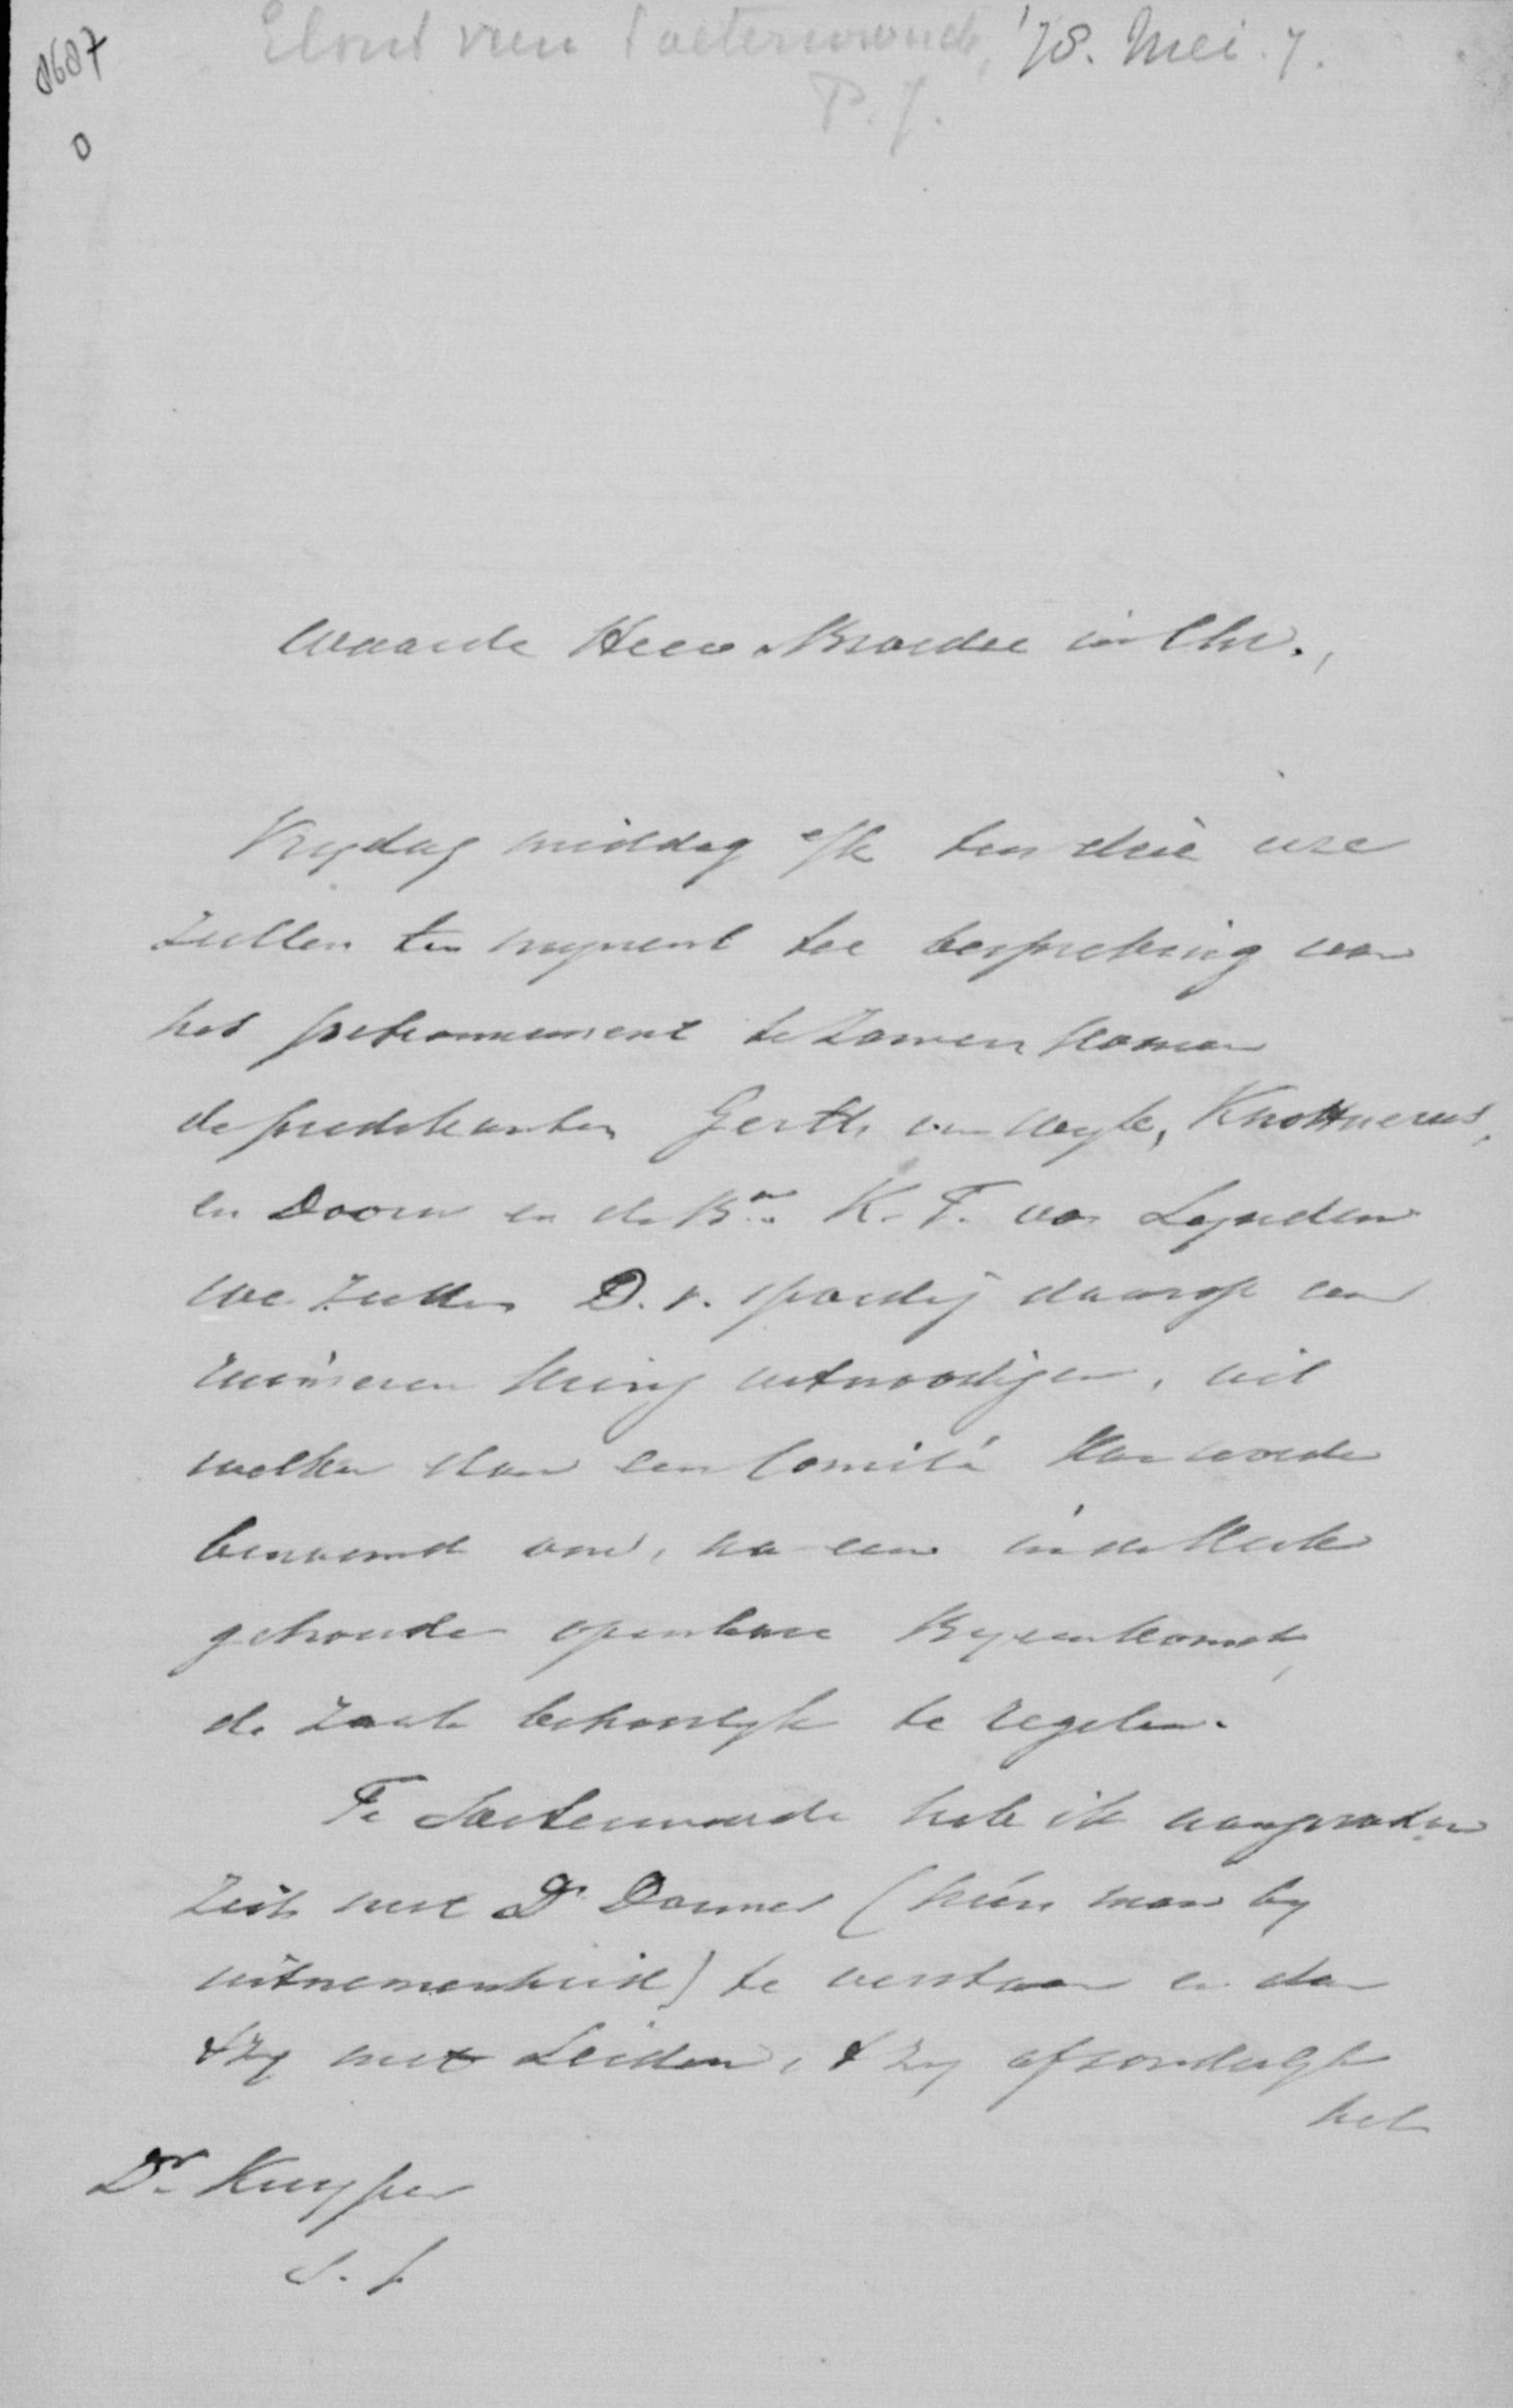 0687
0
Elout van Soeterwoude, '78. Mei. 7.
P. J.
Waarde Heer & Broeder in Chr.,
Vrydag middag e/k ten drie ure
zullen ten mynent ter bespreking van
het petionnement te zamen komen
de predikanten Gerth van Wyk, Knottnerus,
en Doorn en de Bn. K. F. van Lynden
we zullen D. v. spoedig daarop een
ruimeren kring uitnoodigen, uit
welken dan een Comité kan worden
benoemd om, na een in de Kerk
gehouden openbare Byeenkomst,
de zaak behoorlyk te regelen.
Te Soeterwoude heb ik aangeraden
zich met Dr Donner (hún man by
uitnemendheid) te verstaan en dan
't zy met Leiden, 't zy afzonderlyk
het
Dr. Kuyper